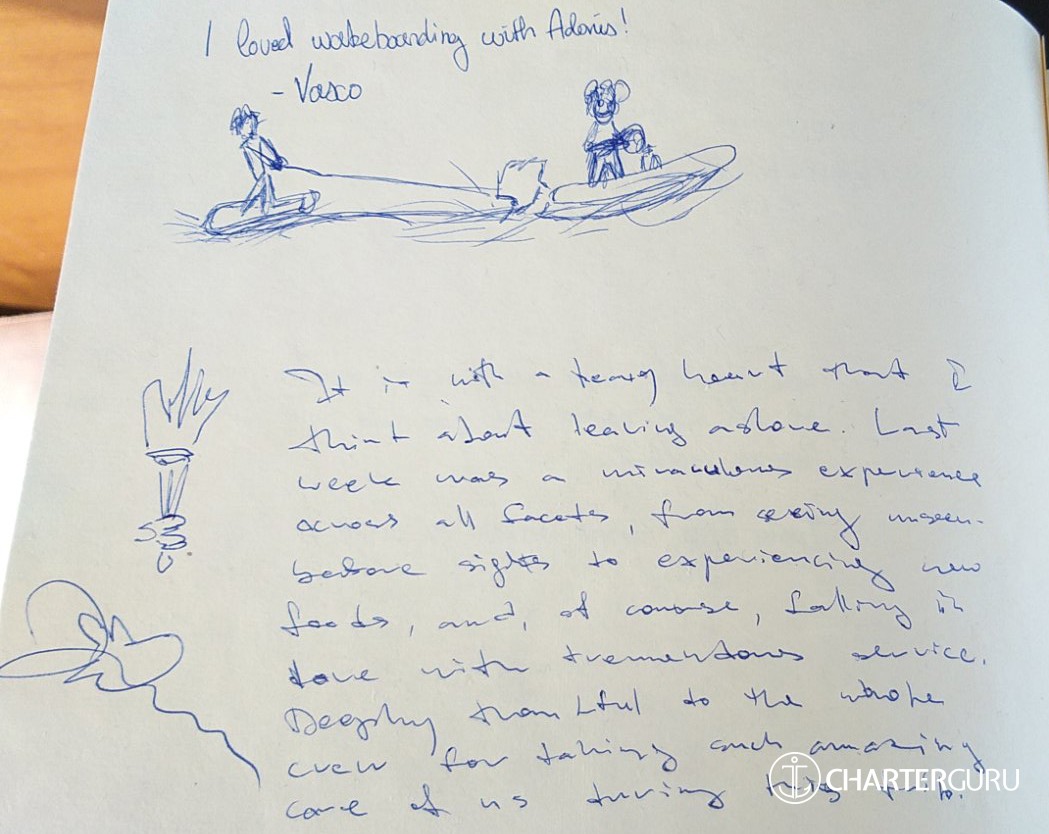 I loved wakeboarding with Adonis!
- Vasco
It is with a heavy heart that I
think about leaving ashore. Last
week was a miraculous experience
across all facets, from seeing unseen-
before sights to experiencing new
foods, and, of course, falling in
love with tremendous service.
Deeply thankful to the whole
crew for taking such amazing
care of us during this trip.
CHARTERGURU